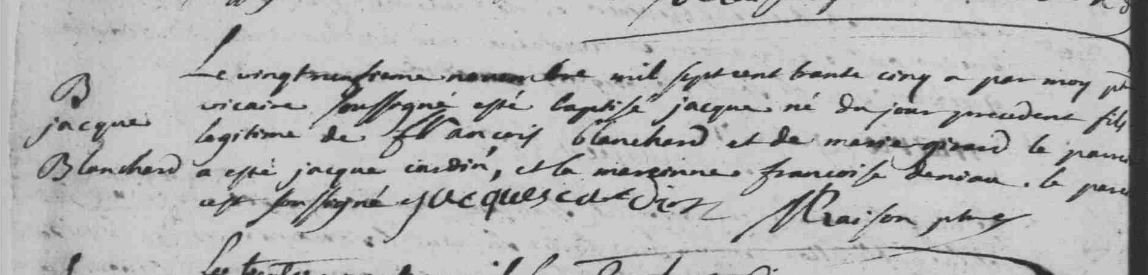 B
jacque
Blanchard
Le vingtneufieme novembre mil sept cent trante cinq a par moy ptre
vicaire soussogné esté baptisé jacque né du jour precedent fils
legitime de francois blanchard et de marie girard le parein
a esté jacque cardin, et la mareinne francoise deniau. le parein
est soussogné jacques cardion
Raison ptre